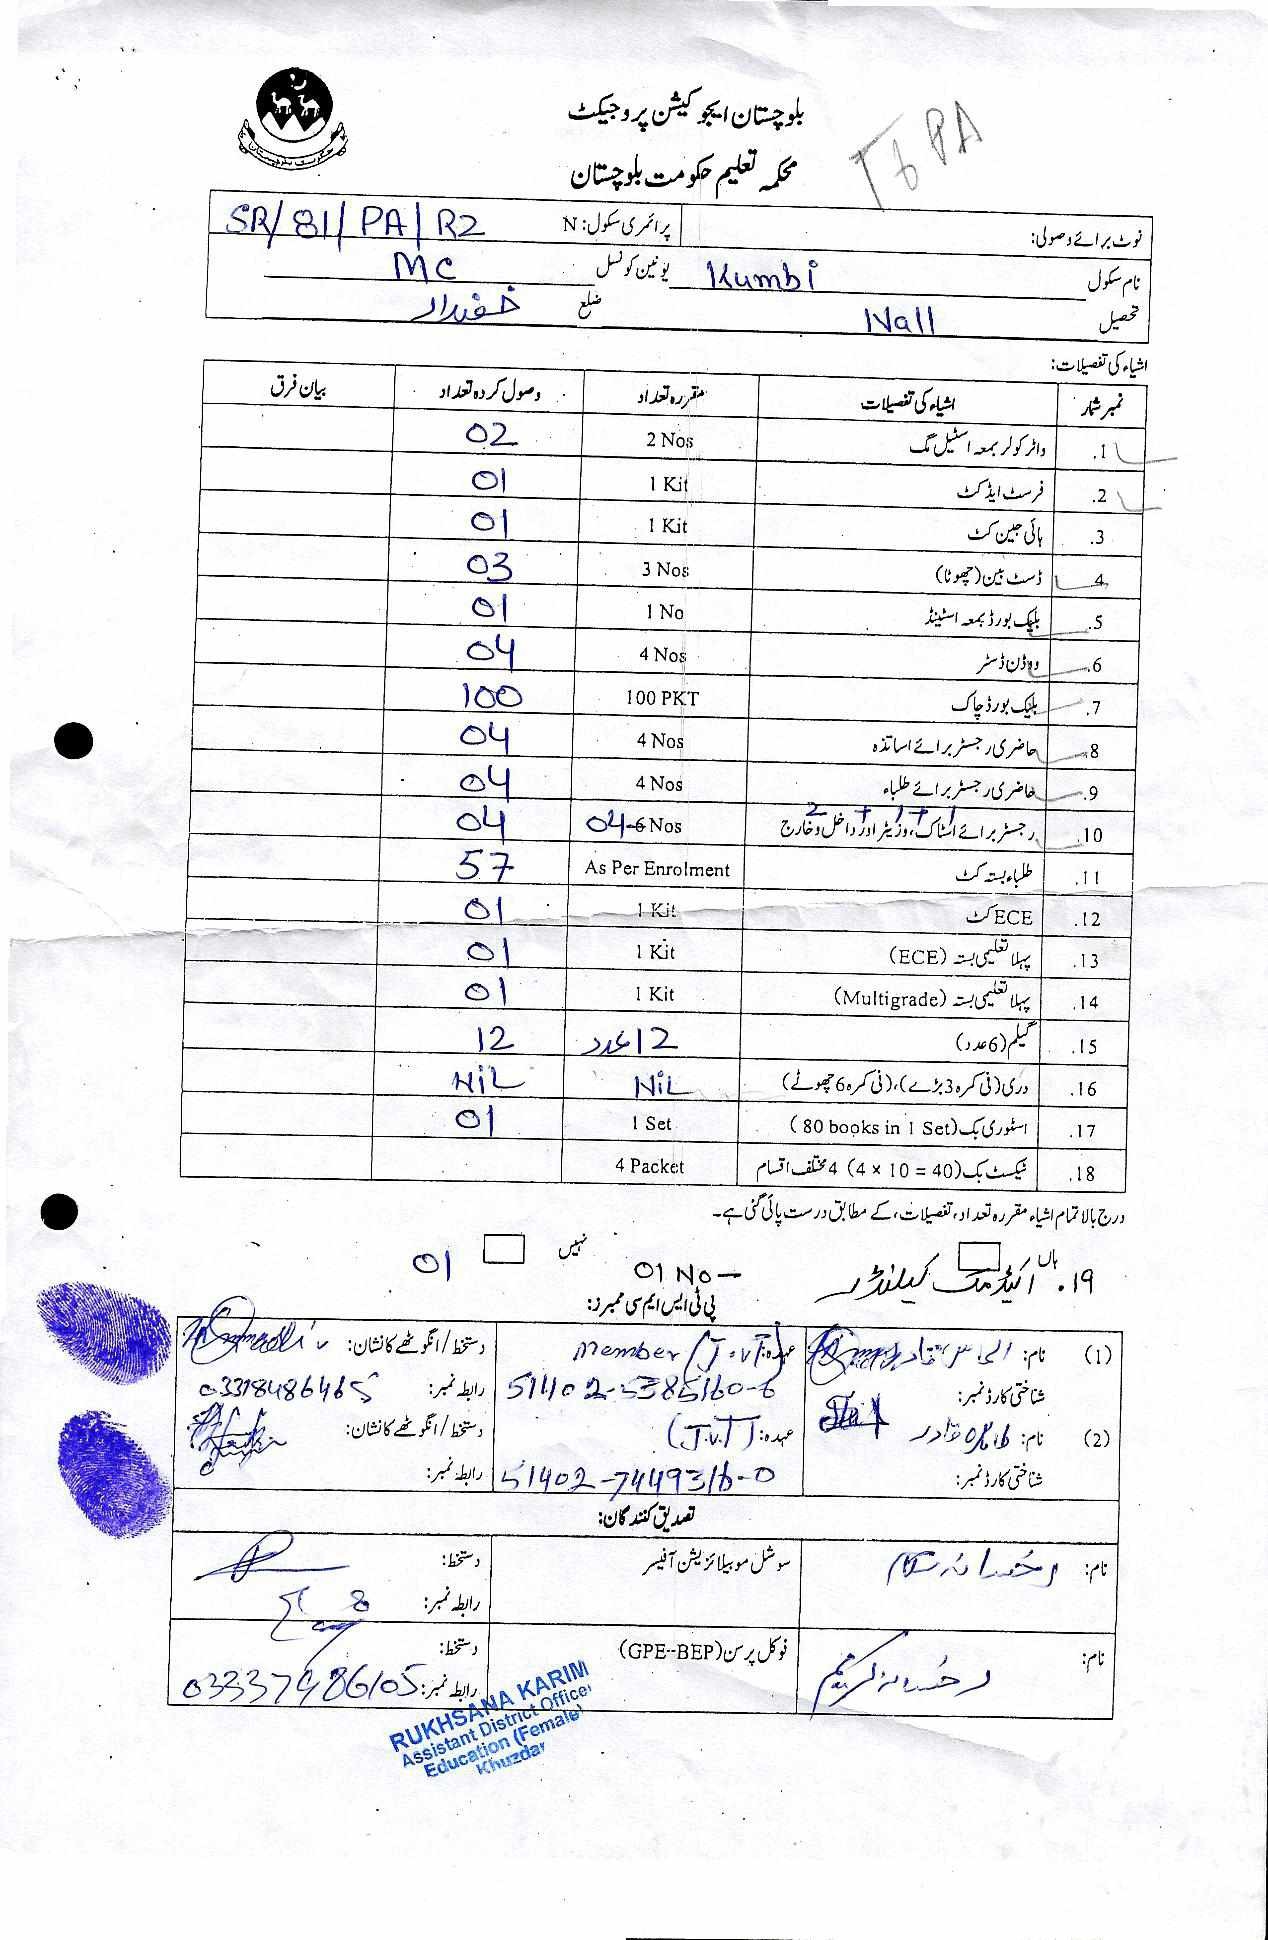 بلوچستان ایجوکیشن پروجیکٹ
T6PA
محکمہ تعلیم حکومت بلوچستان
نوٹ برائے وصولی: پرائمری سکول: N SR/81/PA/R2
نام سکول Kumbi یونین کونسل MC
تحصیل Nall ضلع خضدار
اشیاء کی تفصیلات:
نمبر شمار اشیاء کی تفصیلات مقررہ تعداد وصول کردہ تعداد بیان فرق
1. واٹر کولر بمعہ اسٹیل مگ 2 Nos 02
2. فرسٹ ایڈ کٹ 1 Kit 01
3. ہائی جین کٹ 1 Kit 01
4. ڈسٹ بین (چھوٹا) 3 Nos 03
5. بلیک بورڈ بمعہ اسٹینڈ 1 No 01
6. ووڈن ڈسٹر 4 Nos 04
7. بلیک بورڈ چاک 100 PKT 100
8. حاضری رجسٹر برائے اساتذہ 4 Nos 04
9. حاضری رجسٹر برائے طلباء 4 Nos 04
2 + 1 + 1
10. رجسٹر برائے اسٹاک، وزیٹر اور داخل و خارج 04-6 Nos 04
11. طلباء بستہ کٹ As Per Enrolment 57
12. ECE کٹ 1 Kit 01
13. پہلا تعلیمی بستہ (ECE) 1 Kit 01
14. پہلا تعلیمی بستہ (Multigrade) 1 Kit 01
15. گیلم (6 عدد) 12 عدد 12
16. دری (فی کمرہ 3 بڑے)، (فی کمرہ 6 چھوٹے) NiL NiL
17. اسٹوری بک (80 books in 1 Set) 1 Set 01
18. ٹیکسٹ بک (4 × 10 = 40) 4 مختلف اقسام 4 Packet
درج بالا تمام اشیاء مقررہ تعداد، تفصیلات، کے مطابق درست پائی گئی ہے۔
ہاں نہیں
19. اکیڈمک کیلنڈر 01 No- 01
پی ٹی ایس ایم سی ممبرز:
(1) نام: عہدہ: Member (J.V.T) دستخط/انگوٹھے کا نشان:
شناختی کارڈ نمبر: 51402-5385160-6 رابطہ نمبر: 03318486465
(2) نام: قادر عہدہ: (J.V.T) دستخط/انگوٹھے کا نشان:
شناختی کارڈ نمبر: 51402-7449316-0 رابطہ نمبر:
تصدیق کنندگان:
نام: رخسانہ سوشل موبیلائزیشن آفیسر دستخط:
رابطہ نمبر:
نام: رخسانہ کریم فوکل پرسن (GPE-BEP) دستخط:
رابطہ نمبر: 03337986105
RUKHSANA KARIM
Assistant District Officer
Education (Female)
Khuzdar